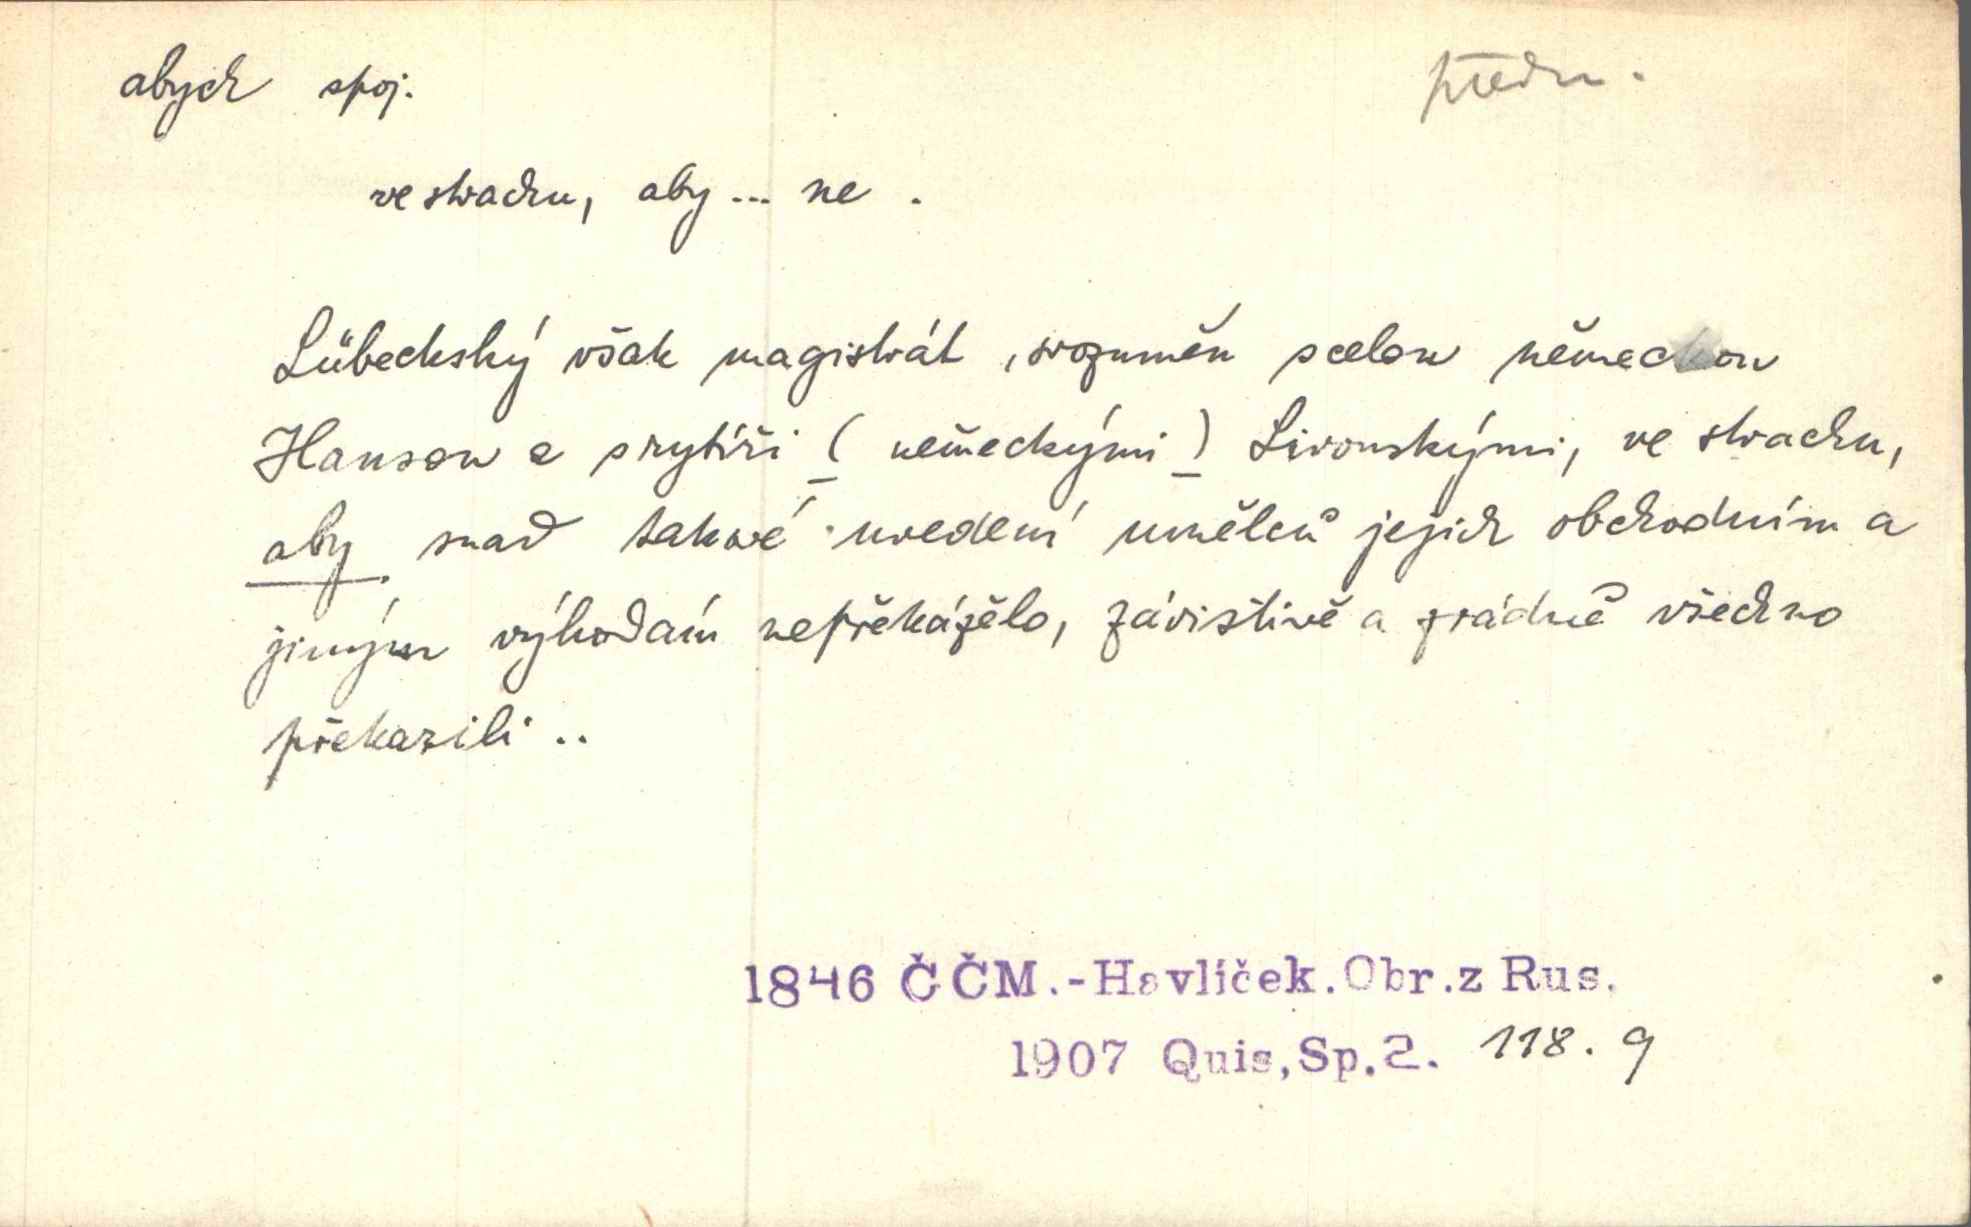 abych spoj. předm.
ve strachu, aby ... ne .
Lübeckský však magistrát, srozuměn s celou německou
Hansou a s rytíři (německými) Livonskými, ve strachu,
aby snad takové uvedení umělců jejich obchodním a
jiným výhodám nepřekáželo, závistivě a zrádně všechno
překazili ..
1846 ČČM.-Havlíček.Obr.z Rus.
1907 Quis,Sp.2. 118. 9